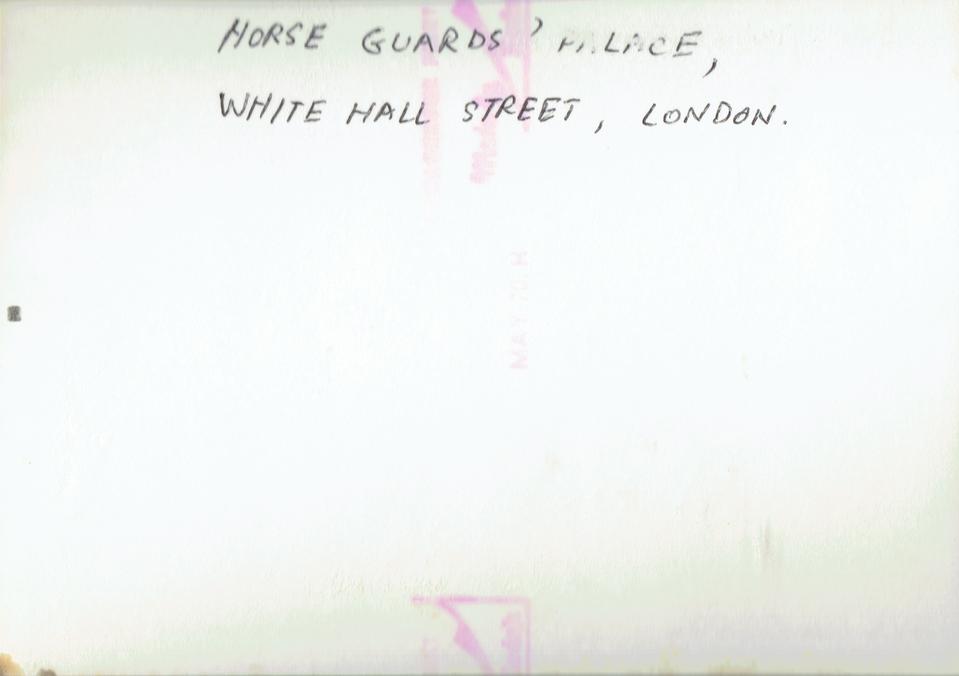 HORSE GUARDS' PALACE,
WHITE HALL STREET, LONDON.
MAY 70 H